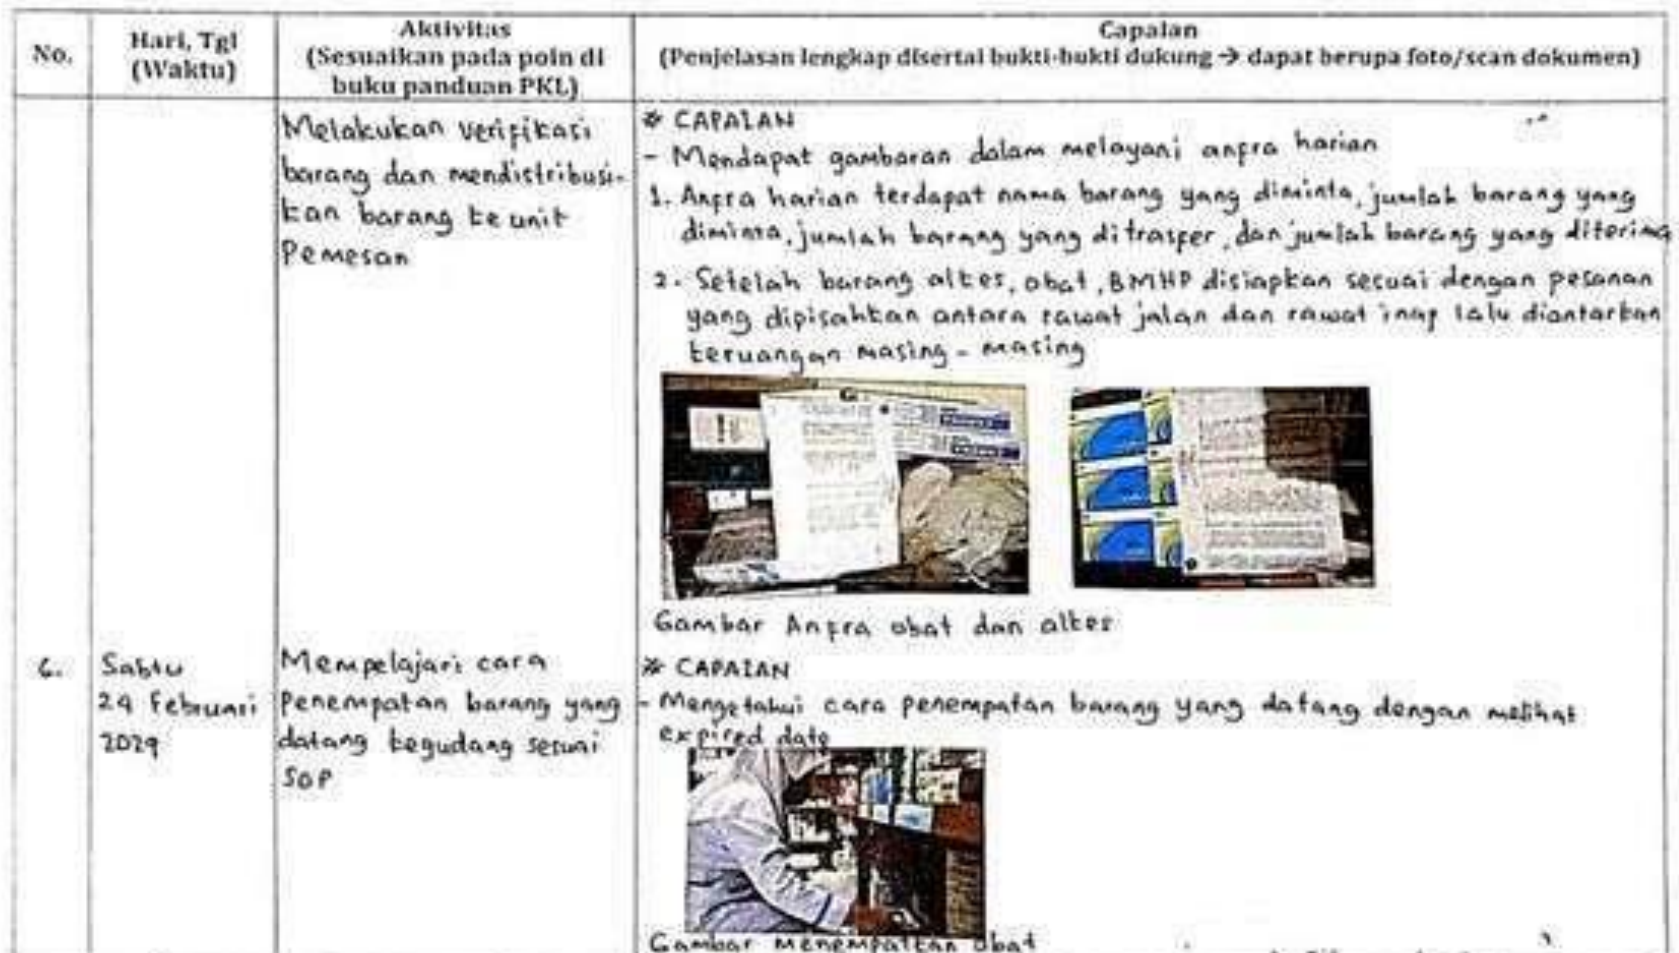 No.
Hari, Tgl
(Waktu)
Aktivitas
(Sesuaikan pada poin di
buku panduan PKL)
Capaian
(Penjelasan lengkap disertai bukti-bukti dukung → dapat berupa foto/scan dokumen)
Melakukan verifikasi
barang dan mendistribusi-
kan barang ke unit
Pemesan
* CAPAIAN
- Mendapat gambaran dalam melayani anfra harian
1. Anfra harian terdapat nama barang yang diminta, jumlah barang yang
diminta, jumlah barang yang ditrasfer, dan jumlah barang yang diterima
2. Setelah barang alkes, obat, BMHP disiapkan sesuai dengan pesanan
yang dipisahkan antara rawat jalan dan rawat inap lalu diantarkan
keruangan masing - masing
Gambar Anfra obat dan alkes
6.
Sabtu
24 Februari
2024
Mempelajari cara
Penempatan barang yang
datang kegudang sesuai
SOP
* CAPAIAN
- Mengetahui cara penempatan barang yang datang dengan melihat
expired date
Gambar menempatkan obat